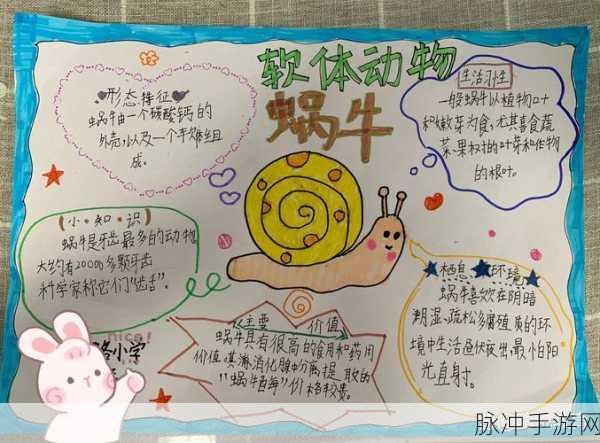 软体动物
蜗牛
形态特征
蜗牛由一个碳酸钙的
外壳,以及一个
成。
生活习性
一般蜗牛以植物叶
和嫩芽为食,尤其喜食蔬
菜、果树的叶芽和作物
的根叶。
(小·知·识)
蜗牛是牙齿最多的动物
大约有20000多颗牙齿
科学家称它们"齿舌"。
主要 价值
蜗牛具有很高的食用和药用
价值,其消化腺分离提取的
"蜗牛酶"价格较贵。
栖息 环境
蜗牛喜欢在阴暗
潮湿、疏松多腐殖质的环
境中生活昼伏夜出,最怕阳
光直射。
nice!
小学
脉冲手游网